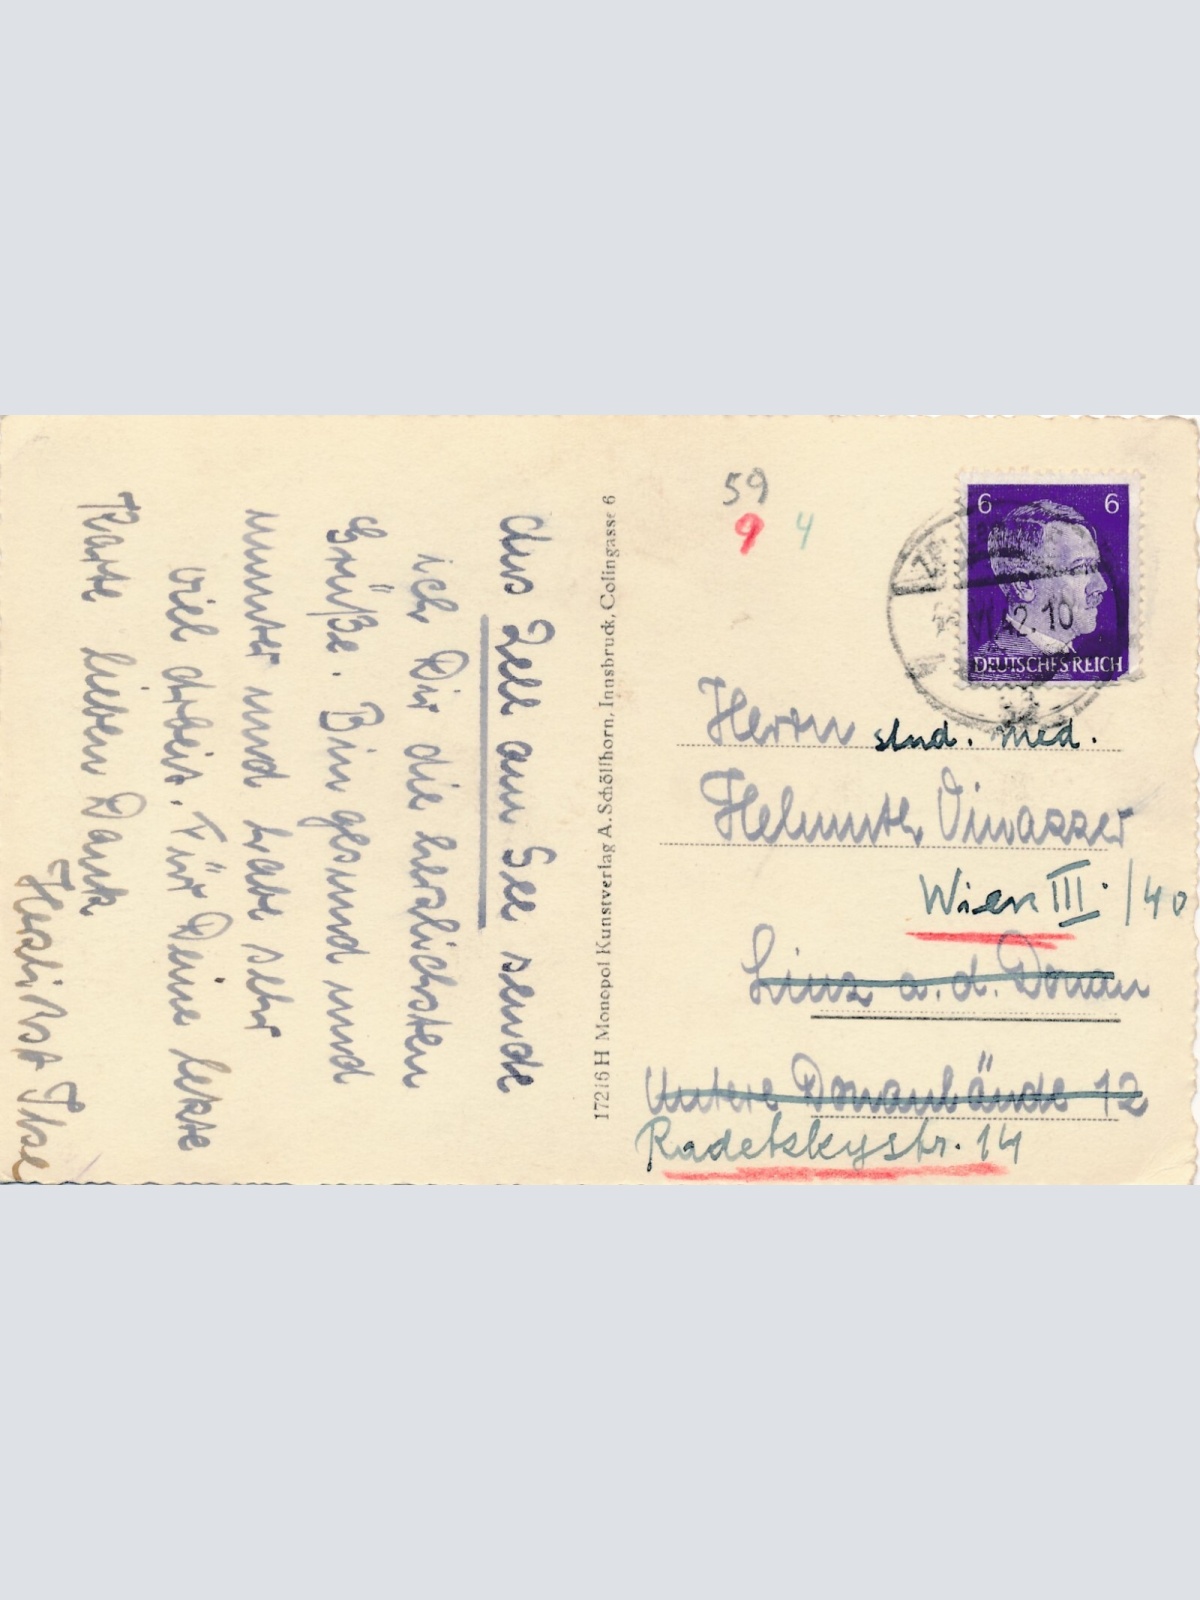 Aus Zell am See sende
ich Dir die herzlichsten
Grüße. Bin gesund und
munter und habe sehr
viel Arbeit. Für Deine letzte
Karte lieben Dank
Herzlichst Ilse
17216 H Monopol Kunstverlag A. Schöllhorn, Innsbruck, Colingasse 6
59
9 4
6 6
DEUTSCHES REICH
VI.42.10
Herrn stud. med.
Helmuth Vinazzer
Wien III. /40
Linz a. d. Donau
Untere Donaulände 12
Radetzkystr. 14